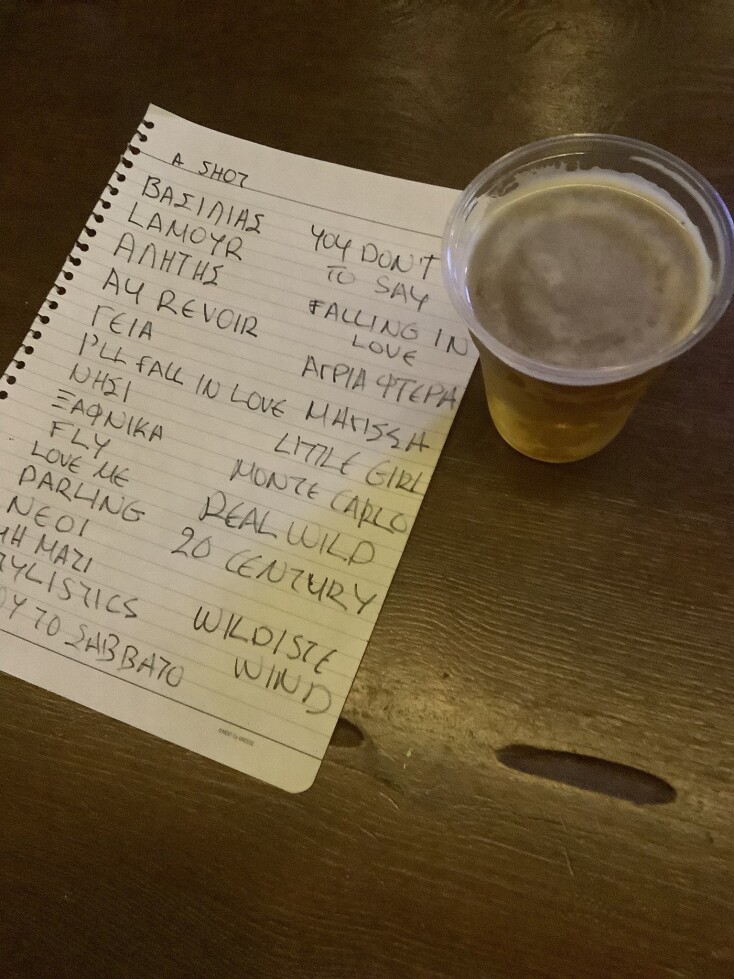 A SHOT
ΒΑΣΙΛΙΑΣ
LAMOYR
ΑΛΗΤΗΣ
AY REVOIR
ΓΕΙΑ
I'LL FALL IN LOVE
ΝΗΣΙ
ΞΑΦΝΙΚΑ
FLY
LOVE ME
DARLING
ΝΕΟΙ
ΜΑΖΙ
TYLISTICS
ΤΟ ΣΑΒΒΑΤΟ
YOY DON'T
TO SAY
FALLING IN
LOVE
ΑΓΡΙΑ ΦΤΕΡΑ
ΜΑΓΙΣΣΑ
LITTLE GIRL
MONTE CARLO
REAL WILD
20 CENTYRY
WILD ISTE
WIND